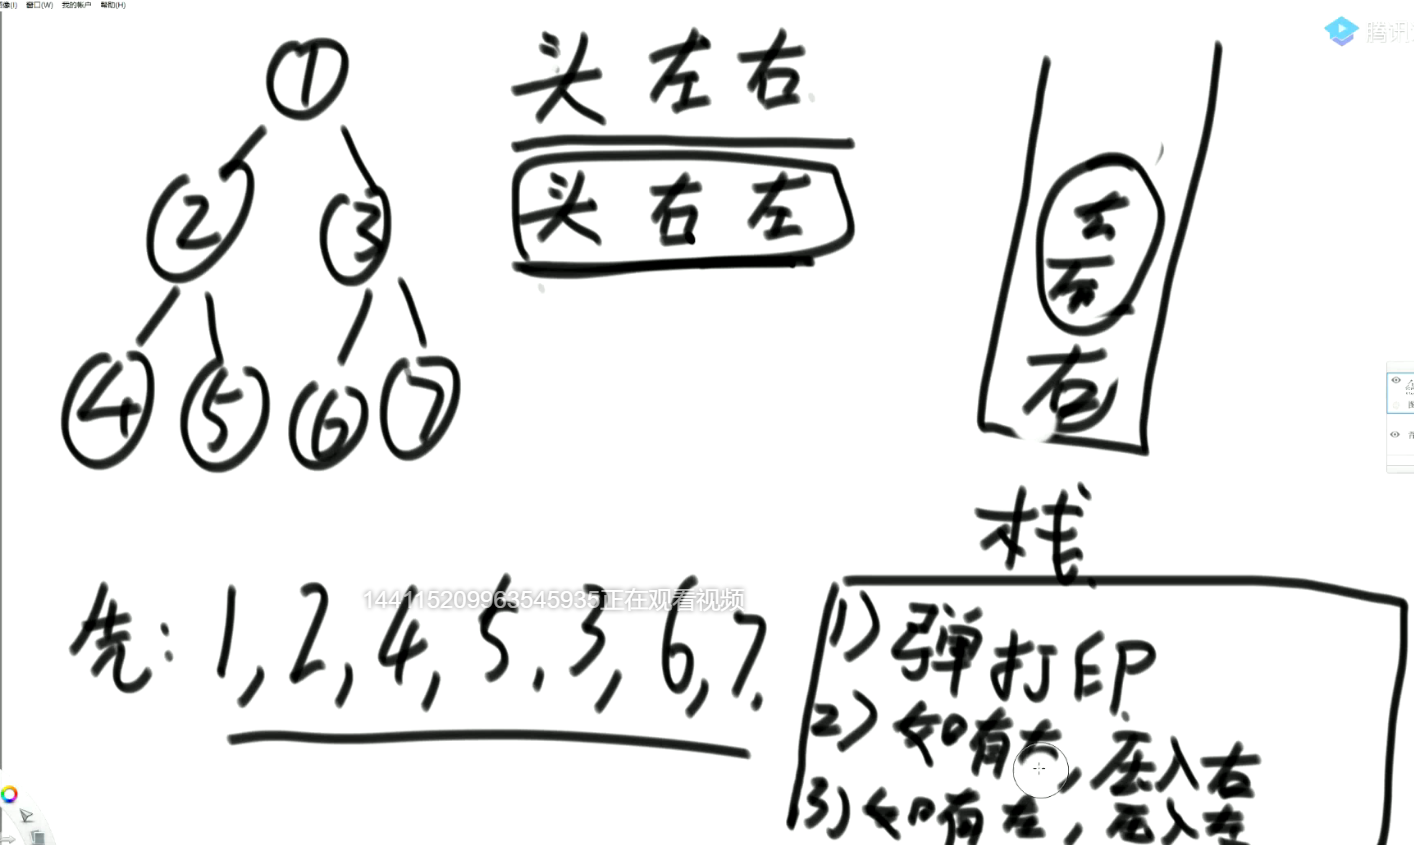 窗口(W) 我的帐户 帮助(H)
腾讯
1
2 3
4 5 6 7
头 左 右
头 右 左
左
右
右
栈
先: 1, 2, 4, 5, 3, 6, 7.
144115209963545935正在观看视频
1) 弹打印
2) 如有右, 压入右
3) 如有左, 压入左